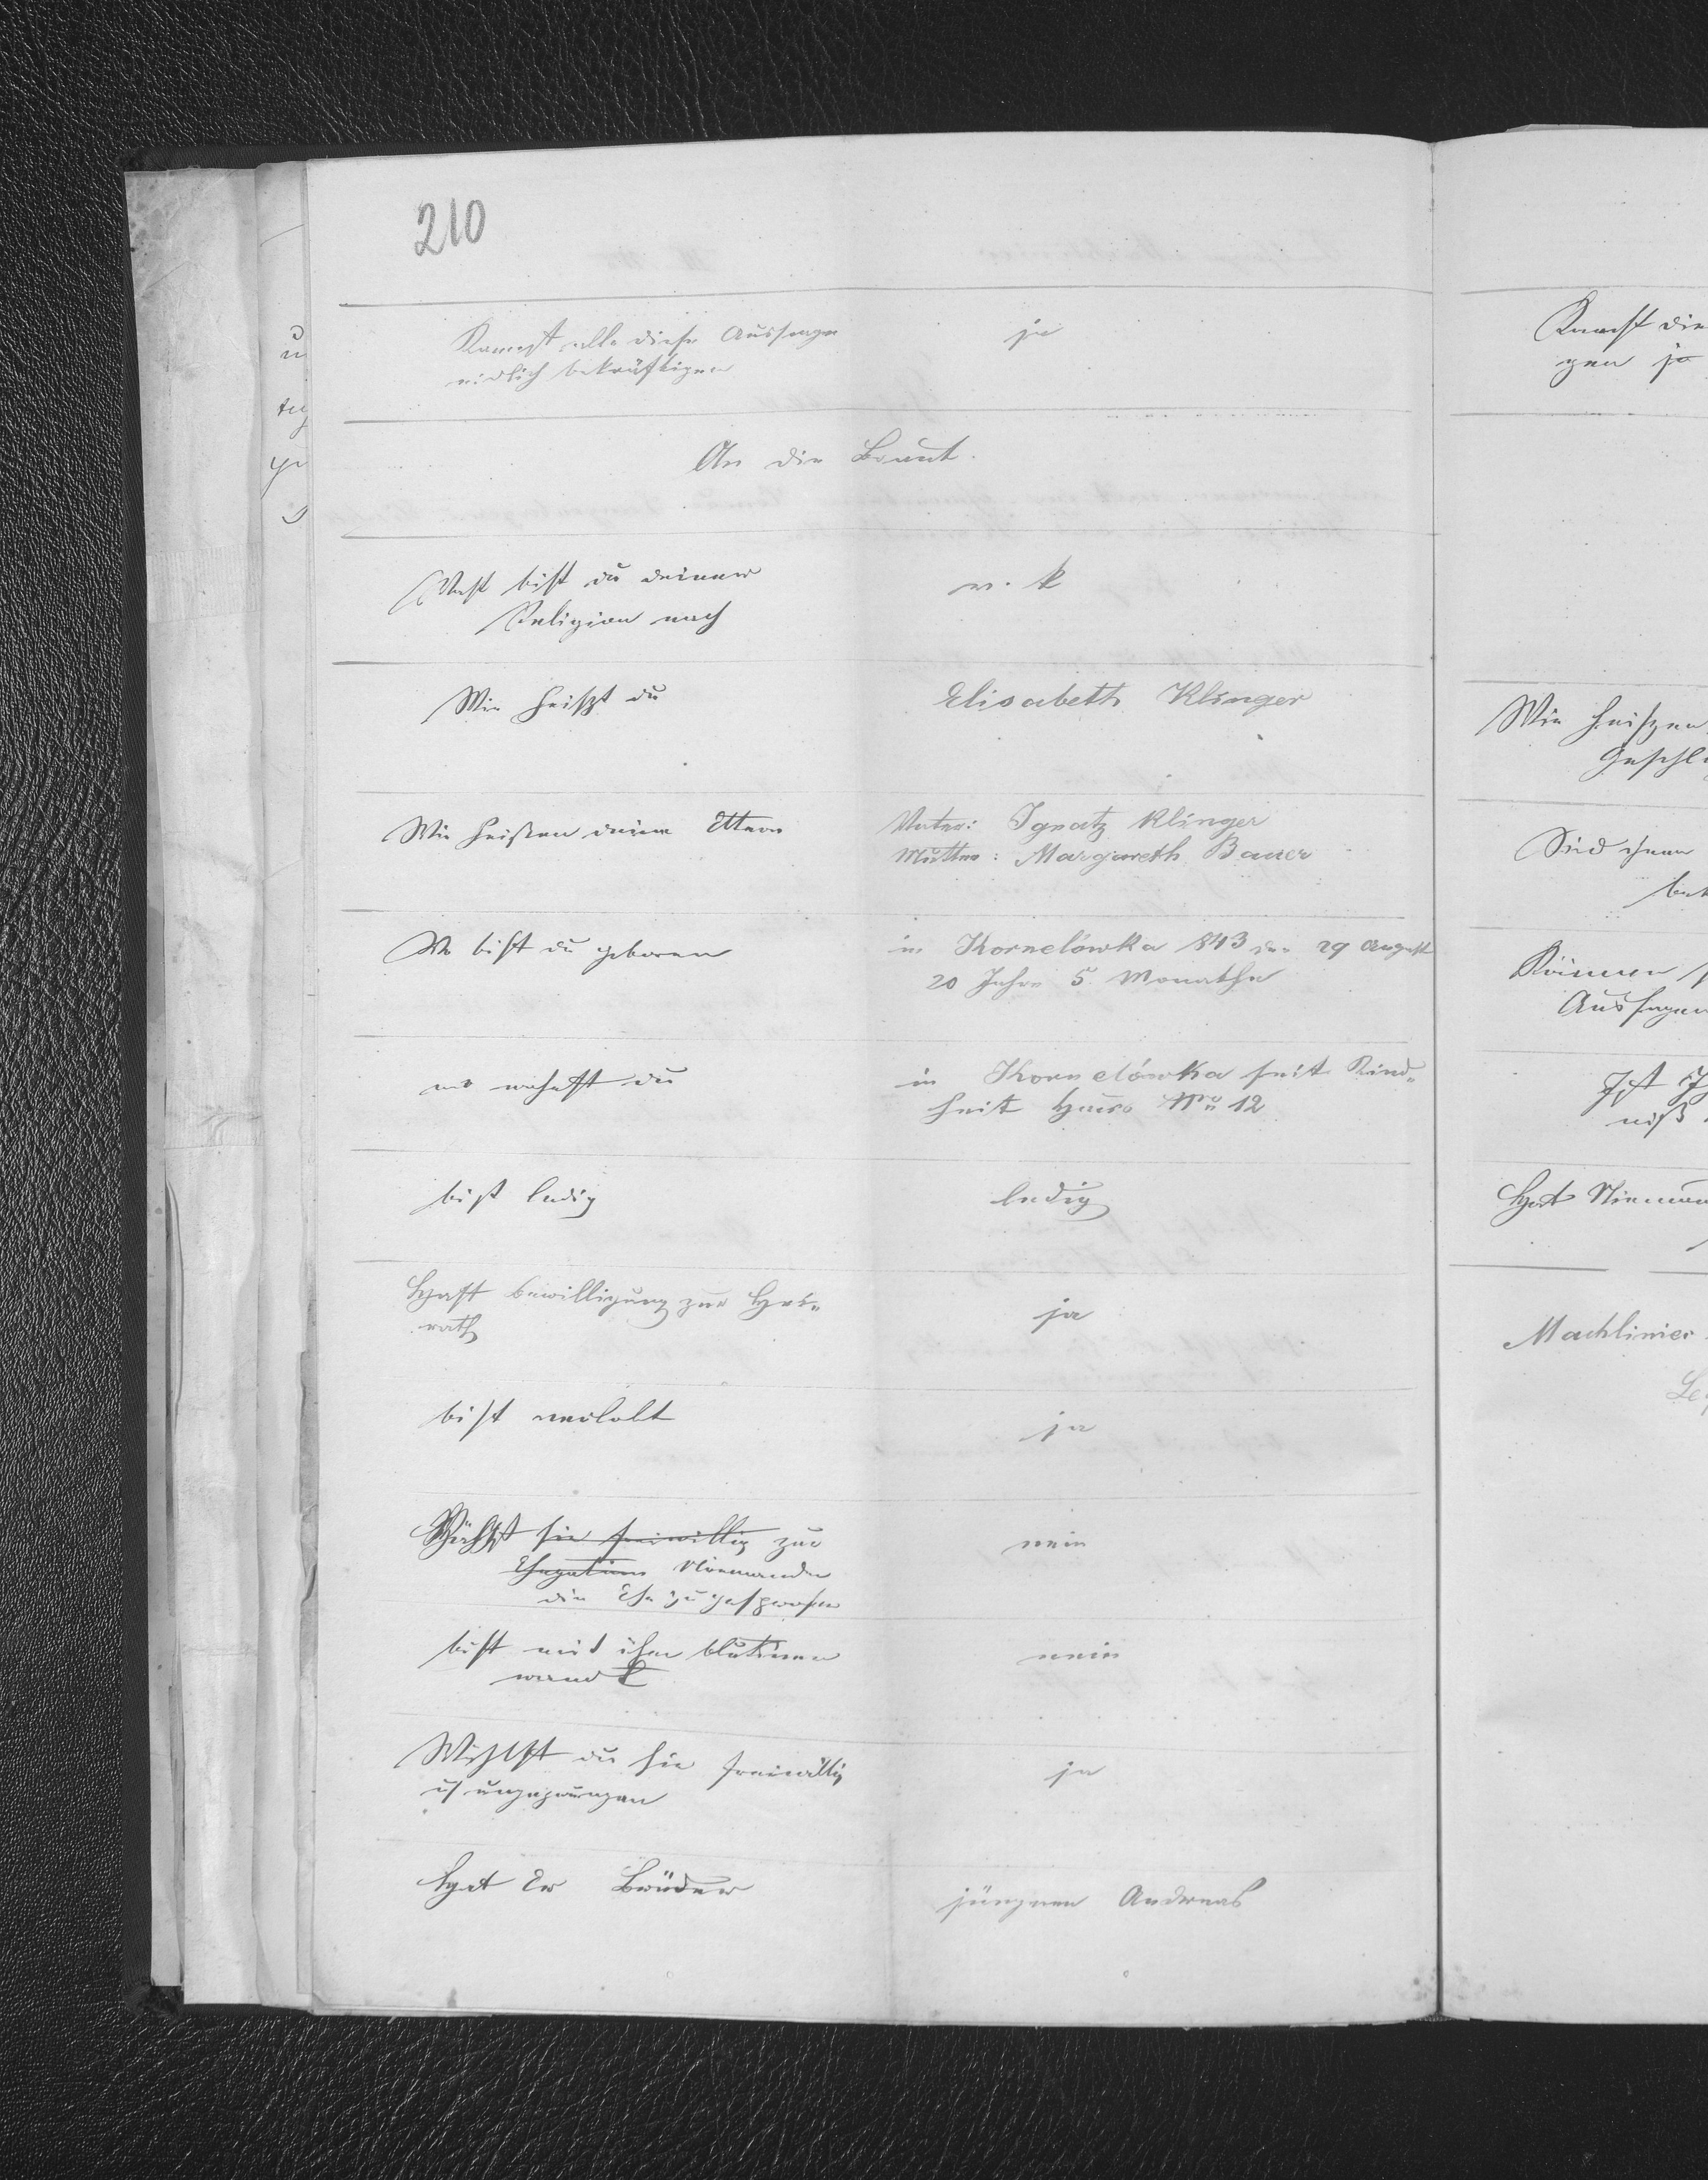 210
Kannst alle diese Aussagen
eidlich bekräftigen
ja
An die Braut.
Was bist du deiner
Religion nach
r. k
Wie heißt du
Elisabeth Klinger
Wie heißen deine Eltern
Vater: Ignatz Klinger
Mutter: Margareth Bauer
Wo bist du geboren
in Kornelówka 843 den 29 August
20 Jahre 5 Monathe
wo wohnst du
in Kornelówka seit Kind„
heit Haus Nro 12
bist ledig
ledig
Hast bewilligung zur Hei„
rath
ja
bist verlobt
ja
sie freiwillig zur
Ehegattin Niemanden
die Ehe zugesprochen
nein
bist mit ihm blutsver
wandt
nein
Wählst du sie freiwillig
u ungezwungen
ja
Hat Er Brüder
jüngeren Andreas
Kannst die
gen ja
Wie heißen
Geschl
Sind ihnen
bek
Können
Aussagen
Ist
niß
Hat Nieman
Machlinier